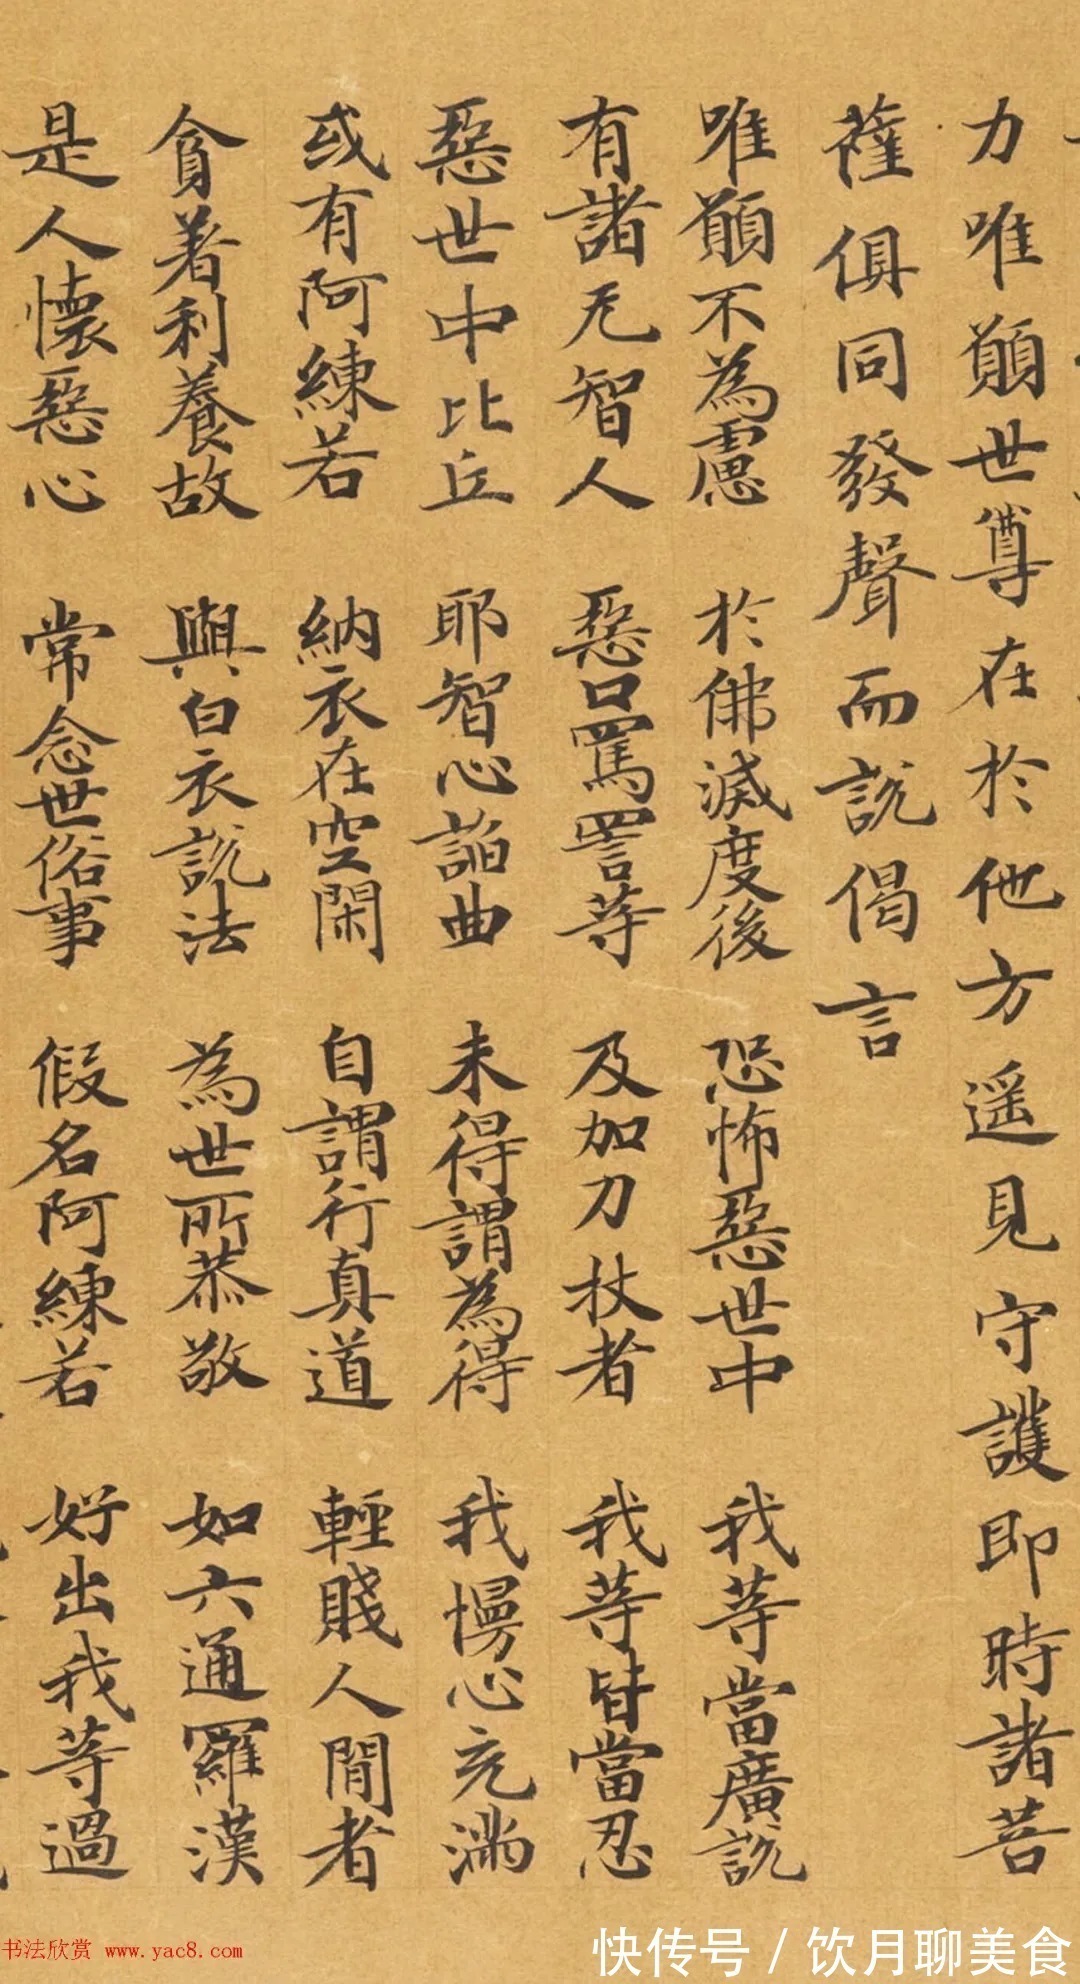 力唯願世尊在於他方遥見守護即時諸菩
薩俱同發聲而說偈言
唯願不為慮 於佛滅度後 恐怖惡世中 我等當廣說
有諸无智人 惡口罵詈等 及加刀杖者 我等皆當忍
惡世中比丘 耶智心諂曲 未得謂為得 我慢心充滿
或有阿練若 納衣在空閑 自謂行真道 輕賤人間者
貪著利養故 與白衣說法 為世所恭敬 如六通羅漢
是人懷惡心 常念世俗事 假名阿練若 好出我等過
书法欣赏 www.yac8.com
快传号 / 饮月聊美食